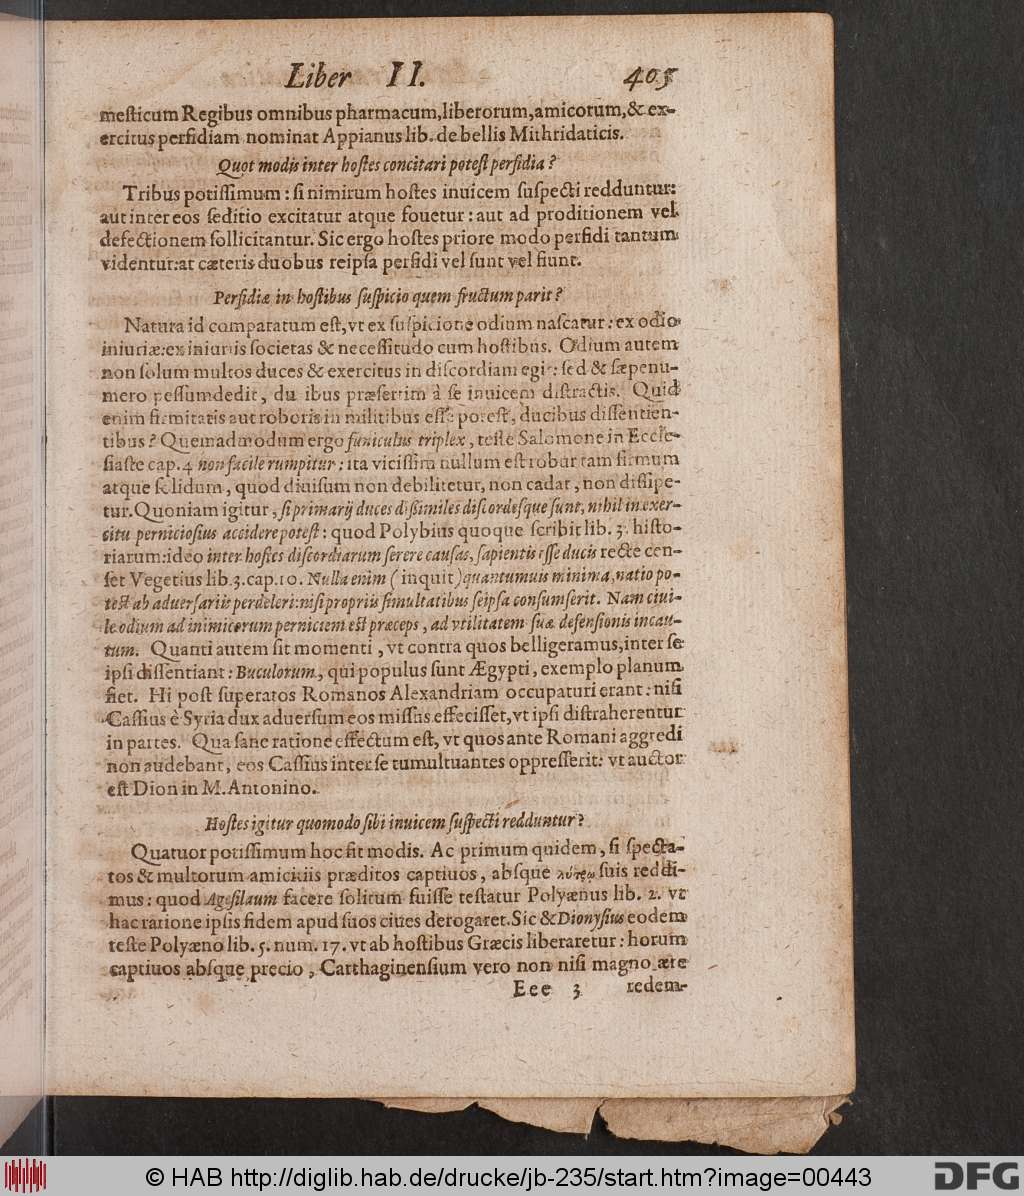 Liber II. 405
mesticum Regibus omnibus pharmacum, liberorum, amicorum, & ex-
ercitus perfidiam nominat Appianus lib. de bellis Mithridaticis.
Quot modis inter hostes concitari potest perfidia?
Tribus potissimum: si nimirum hostes inuicem suspecti redduntur:
aut inter eos seditio excitatur atque fouetur: aut ad proditionem vel
defectionem sollicitantur. Sic ergo hostes priore modo perfidi tantum
videntur: at cæteris duobus reipsa perfidi vel sunt vel fiunt.
Perfidiæ in hostibus suspicio quem fructum parit?
Natura id comparatum est, vt ex suspicione odium nascatur: ex odio
iniuriæ: ex iniuriis societas & necessitudo cum hostibus. Odium autem
non solum multos duces & exercitus in discordiam egit: sed & sæpenu-
mero pessumdedit, ducibus præsertim à se inuicem distractis. Quid
enim firmitatis aut roboris in militibus esse potest, ducibus dissentien-
tibus? Quemadmodum ergo funiculus triplex, teste Salomone in Eccle-
siaste cap. 4 non facile rumpitur: ita vicissim nullum est robur tam firmum
atque solidum, quod diuisum non debilitetur, non cadat, non dissipe-
tur. Quoniam igitur, si primarij duces dissimiles discordesque sunt, nihil in exer-
citu perniciosius accidere potest: quod Polybius quoque scribit lib. 3. histo-
riarum: ideo inter hostes discordiarum serere causas, sapientis esse ducis recte cen-
set Vegetius lib. 3. cap. 10. Nulla enim (inquit) quantumuis minima, natio po-
test ab aduersariis perdeleri: nisi propriis simultatibus seipsa consumserit. Nam ciui-
le odium ad inimicorum perniciem est præceps, ad vtilitatem suæ defensionis incau-
tum. Quanti autem sit momenti, vt contra quos belligeramus, inter se
ipsi dissentiant: Buculorum, qui populus sunt Ægypti, exemplo planum
fiet. Hi post superatos Romanos Alexandriam occupaturi erant: nisi
Cassius è Syria dux aduersum eos missus effecisset, vt ipsi distraherentur
in partes. Qua sane ratione effectum est, vt quos ante Romani aggredi
non audebant, eos Cassius inter se tumultuantes oppresserit: vt auctor
est Dion in M. Antonino.
Hostes igitur quomodo sibi inuicem suspecti redduntur?
Quatuor potissimum hoc fit modis. Ac primum quidem, si specta-
tos & multorum amicitiis præditos captiuos, absque λύτρῳ suis reddi-
mus: quod Agesilaum facere solitum fuisse testatur Polyænus lib. 2. vt
hac ratione ipsis fidem apud suos ciues derogaret. Sic & Dionysius eodem
teste Polyæno lib. 5. num. 17. vt ab hostibus Græcis liberaretur: horum
captiuos absque precio, Carthaginensium vero non nisi magno ære
Eee 3 redem-
© HAB http://diglib.hab.de/drucke/jb-235/start.htm?image=00443
DFG